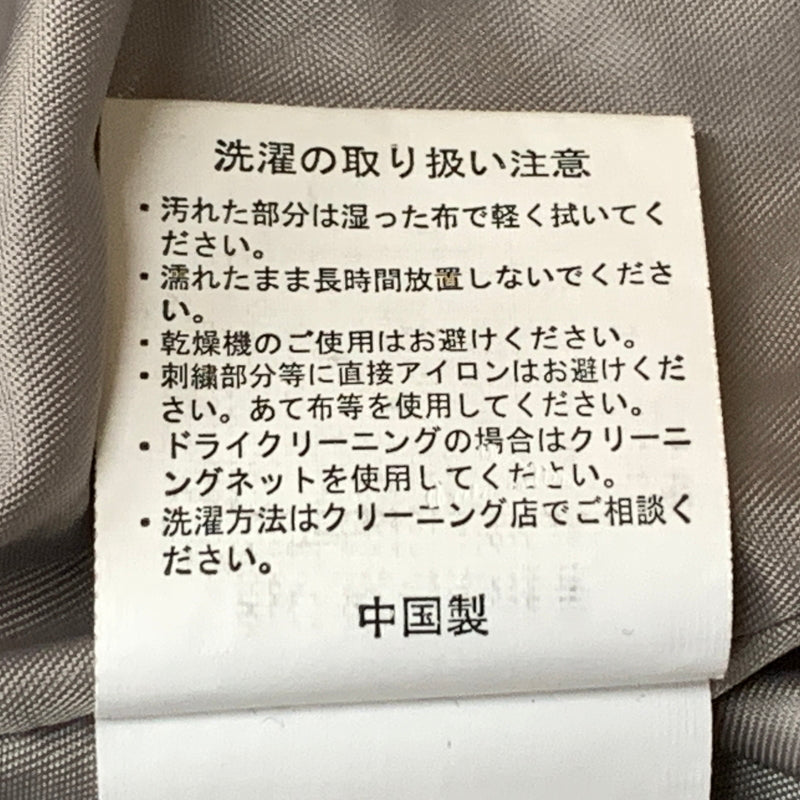 洗濯の取り扱い注意
・汚れた部分は湿った布で軽く拭いてく
ださい。
・濡れたまま長時間放置しないでくださ
い。
・乾燥機のご使用はお避けください。
・刺繍部分等に直接アイロンはお避けくだ
さい。あて布等を使用してください。
・ドライクリーニングの場合はクリーニ
ングネットを使用してください。
・洗濯方法はクリーニング店でご相談く
ださい。
中国製